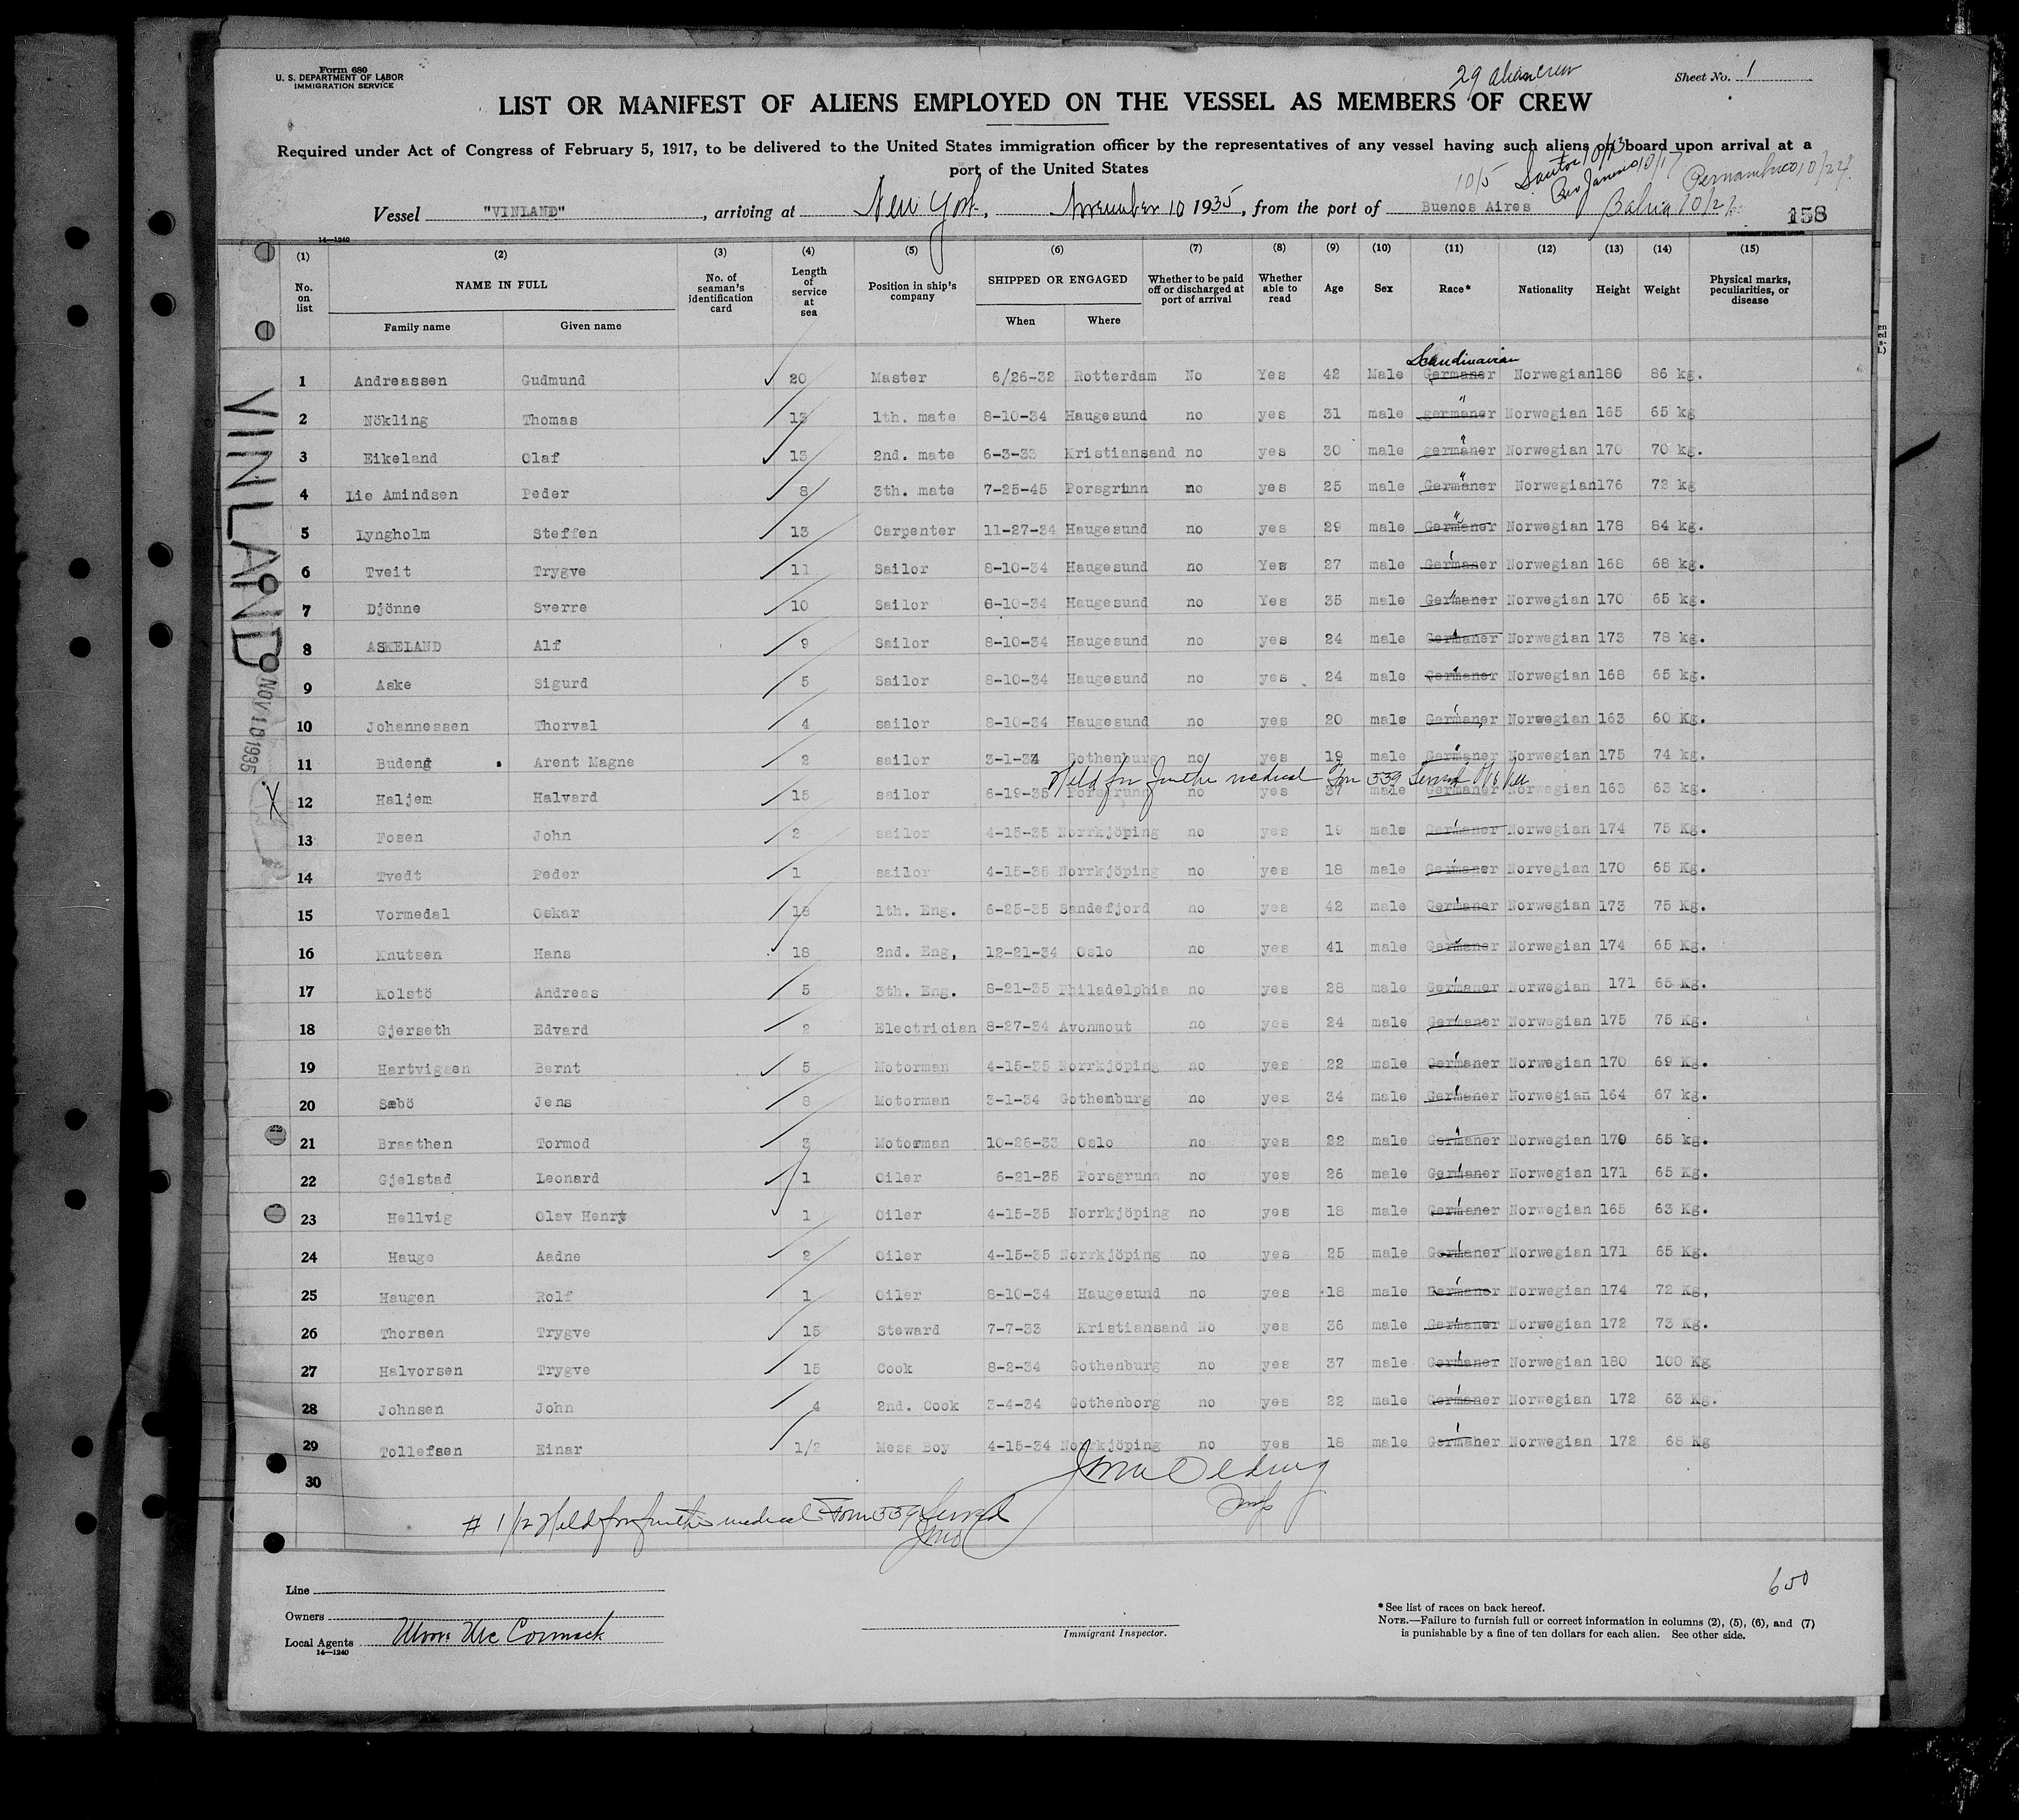 Form 680
U. S. DEPARTMENT OF LABOR
IMMIGRATION SERVICE
29 alien crew
Sheet No. 1
LIST OR MANIFEST OF ALIENS EMPLOYED ON THE VESSEL AS MEMBERS OF CREW
Required under Act of Congress of February 5, 1917, to be delivered to the United States immigration officer by the representatives of any vessel having such aliens on board upon arrival at a
port of the United States
10/5 Santos 10/13 Rio Janeiro 10/17 Pernambuco 10/24
Vessel "VINLAND", arriving at New York, November 10 1935, from the port of Buenos Aires Bahia 10/2
158
14—1240
(1) (2) (3) (4) (5) (6) (7) (8) (9) (10) (11) (12) (13) (14) (15)
No. on list NAME IN FULL Family name Given name No. of seaman's identification card Length of service at sea Position in ship's company SHIPPED OR ENGAGED When Where Whether to be paid off or discharged at port of arrival Whether able to read Age Sex Race* Nationality Height Weight Physical marks, peculiarities, or disease
Scandinavian
1 Andreassen Gudmund 20 Master 6/26-32 Rotterdam No Yes 42 Male Germaner Norwegian 180 86 kg.
2 Nökling Thomas 13 1th. mate 8-10-34 Haugesund no yes 31 male germaner Norwegian 165 65 kg
3 Eikeland Olaf 13 2nd. mate 6-3-33 Kristiansand no yes 30 male germaner Norwegian 170 70 kg.
4 Lie Amindsen Peder 8 3th. mate 7-25-45 Porsgrunn no yes 25 male Germaner Norwegian 176 72 kg
5 Lyngholm Steffen 13 Carpenter 11-27-34 Haugesund no yes 29 male Germaner Norwegian 178 84 kg.
6 Tveit Trygve 11 Sailor 8-10-34 Haugesund no Yes 27 male Germaner Norwegian 168 68 kg.
7 Djönne Sverre 10 Sailor 8-10-34 Haugesund no Yes 35 male Germaner Norwegian 170 65 kg.
8 ASKELAND Alf 9 Sailor 8-10-34 Haugesund no yes 24 male Germaner Norwegian 173 78 kg.
9 Aske Sigurd 5 Sailor 8-10-34 Haugesund no yes 24 male Germaner Norwegian 168 65 kg.
10 Johannessen Thorval 4 sailor 8-10-34 Haugesund no yes 20 male Germaner Norwegian 163 60 Kg.
11 Budeng Arent Magne 2 sailor 3-1-34 Gothenburg no yes 19 male Germaner Norwegian 175 74 kg.
Held for further medical Form 539 Served
12 Haljem Halvard 15 sailor 6-19-35 Porsgrunn no yes 37 male Germaner Norwegian 163 63 kg.
13 Fosen John 2 sailor 4-15-35 Norrkjöping no yes 19 male Germaner Norwegian 174 75 Kg.
14 Tvedt Peder 1 sailor 4-15-35 Norrkjöping no yes 18 male Germaner Norvegian 170 65 Kg.
15 Vormedal Oskar 18 1th. Eng. 6-25-35 Sandefjord no yes 42 male Germaner Norwegian 173 75 Kg.
16 Knutsen Hans 18 2nd. Eng, 12-21-34 Oslo no yes 41 male Germaner Norwegian 174 65 Kg.
17 Kolstö Andreas 5 3th. Eng. 8-21-35 Philadelphia no yes 28 male Germaner Norwegian 171 65 Kg.
18 Gjerseth Edvard 2 Electrician 8-27-34 Avonmout no yes 24 male Germaner Norwegian 175 75 Kg.
19 Hartvigsen Bernt 5 Motorman 4-15-35 Norrkjöping no yes 22 male Germaner Norwegian 170 69 Kg.
20 Sæbö Jens 8 Motorman 3-1-34 Gothenburg no yes 34 male Germaner Norwegian 164 67 kg.
21 Braathen Tormod 3 Motorman 10-26-33 Oslo no yes 22 male Germaner Norwegian 170 65 kg.
22 Gjelstad Leonard 1 Oiler 6-21-35 Porsgrunn no yes 26 male Germaner Norwegian 171 65 Kg.
23 Hellvig Olav Henry 1 Oiler 4-15-35 Norrkjöping no yes 18 male Germaner Norwegian 165 63 Kg.
24 Hauge Aadne 2 Oiler 4-15-35 Norrkjöping no yes 25 male Germaner Norwegian 171 65 Kg.
25 Haugen Rolf 1 Oiler 8-10-34 Haugesund no yes 18 male Germaner Norwegian 174 72 Kg,
26 Thorsen Trygve 15 Steward 7-7-33 Kristiansand No yes 36 male Germaner Norwegian 172 73 Kg.
27 Halvorsen Trygve 15 Cook 8-2-34 Gothenburg no yes 37 male Germaner Norwegian 180 100 Kg
28 Johnsen John 4 2nd. Cook 3-4-34 Gothenborg no yes 22 male Germaner Norwegian 172 63 Kg.
29 Tollefsen Einar 1/2 Mess Boy 4-15-34 Norrkjöping no yes 18 male Germaner Norwegian 172 68 Kg
30
# 1/12 Held for further medical Form 539 Served
VINLAND
NOV 10 1935
Line
Owners
Local Agents Moore McCormack
14—1240
Immigrant Inspector.
650
* See list of races on back hereof.
NOTE.—Failure to furnish full or correct information in columns (2), (5), (6), and (7)
is punishable by a fine of ten dollars for each alien. See other side.